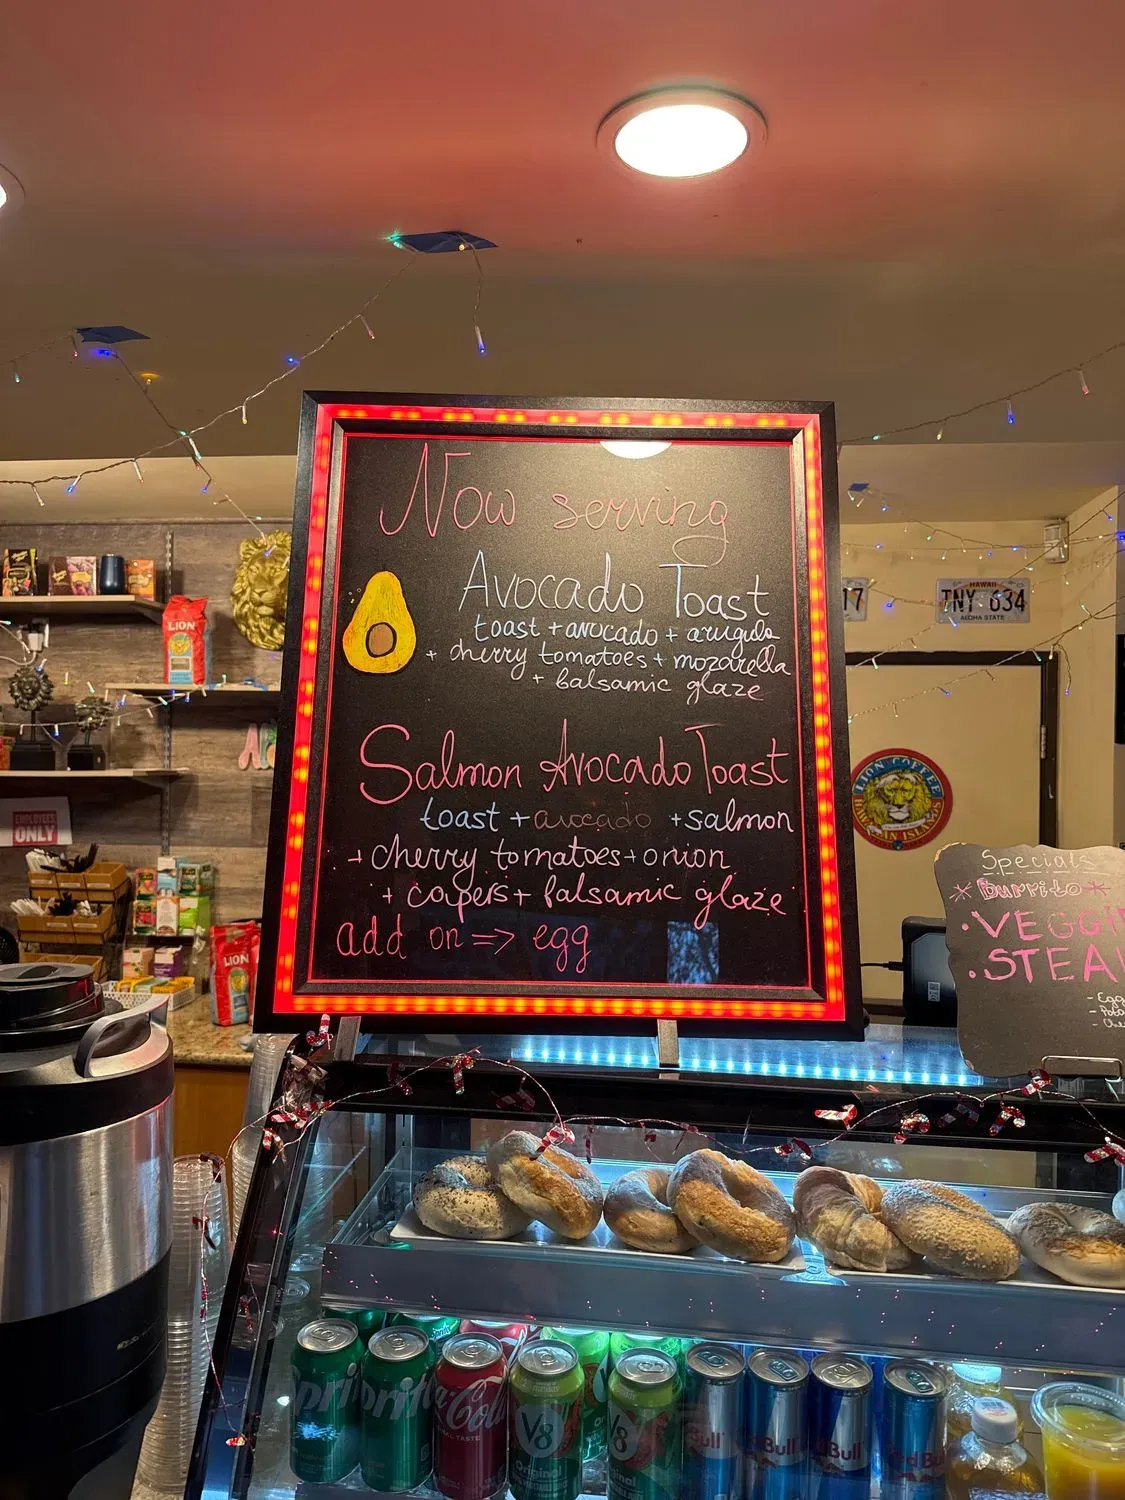 Now serving
Avocado Toast
toast + avocado + arugula
+ cherry tomatoes + mozarella
+ balsamic glaze
Salmon Avocado Toast
toast + avocado + salmon
+ cherry tomatoes + onion
+ capers + balsamic glaze
add on => egg
LION
EMPLOYEES
ONLY
LION
17
HAWAII
TNY 634
ALOHA STATE
LION COFFEE
HAWAIIAN ISLANDS
Specials
* Burrito *
• VEGGI
• STEA
- Egg
- Pota
- Che
Spri
Sprite
Coca-Cola
V8
Original
V8
Original
Bull
Red Bull
Red Bull
Red Bull